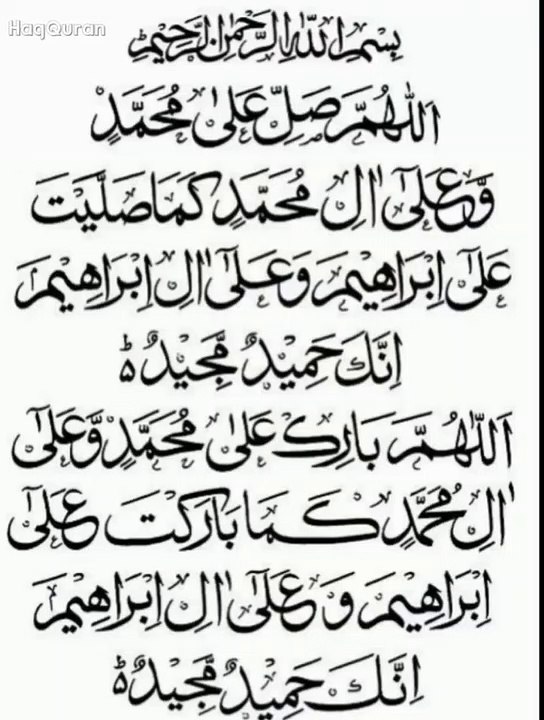 HaqQuran
بِسْمِ اللّٰهِ الرَّحْمٰنِ الرَّحِيْمِ
اَللّٰهُمَّ صَلِّ عَلٰى مُحَمَّدٍ
وَّعَلٰٓى اٰلِ مُحَمَّدٍ كَمَا صَلَّيْتَ
عَلٰٓى اِبْرَاهِيْمَ وَعَلٰٓى اٰلِ اِبْرَاهِيْمَ
اِنَّكَ حَمِيْدٌ مَّجِيْدٌ ؕ
اَللّٰهُمَّ بَارِكْ عَلٰى مُحَمَّدٍ وَّعَلٰٓى
اٰلِ مُحَمَّدٍ كَمَا بَارَكْتَ عَلٰٓى
اِبْرَاهِيْمَ وَعَلٰٓى اٰلِ اِبْرَاهِيْمَ
اِنَّكَ حَمِيْدٌ مَّجِيْدٌ ؕ